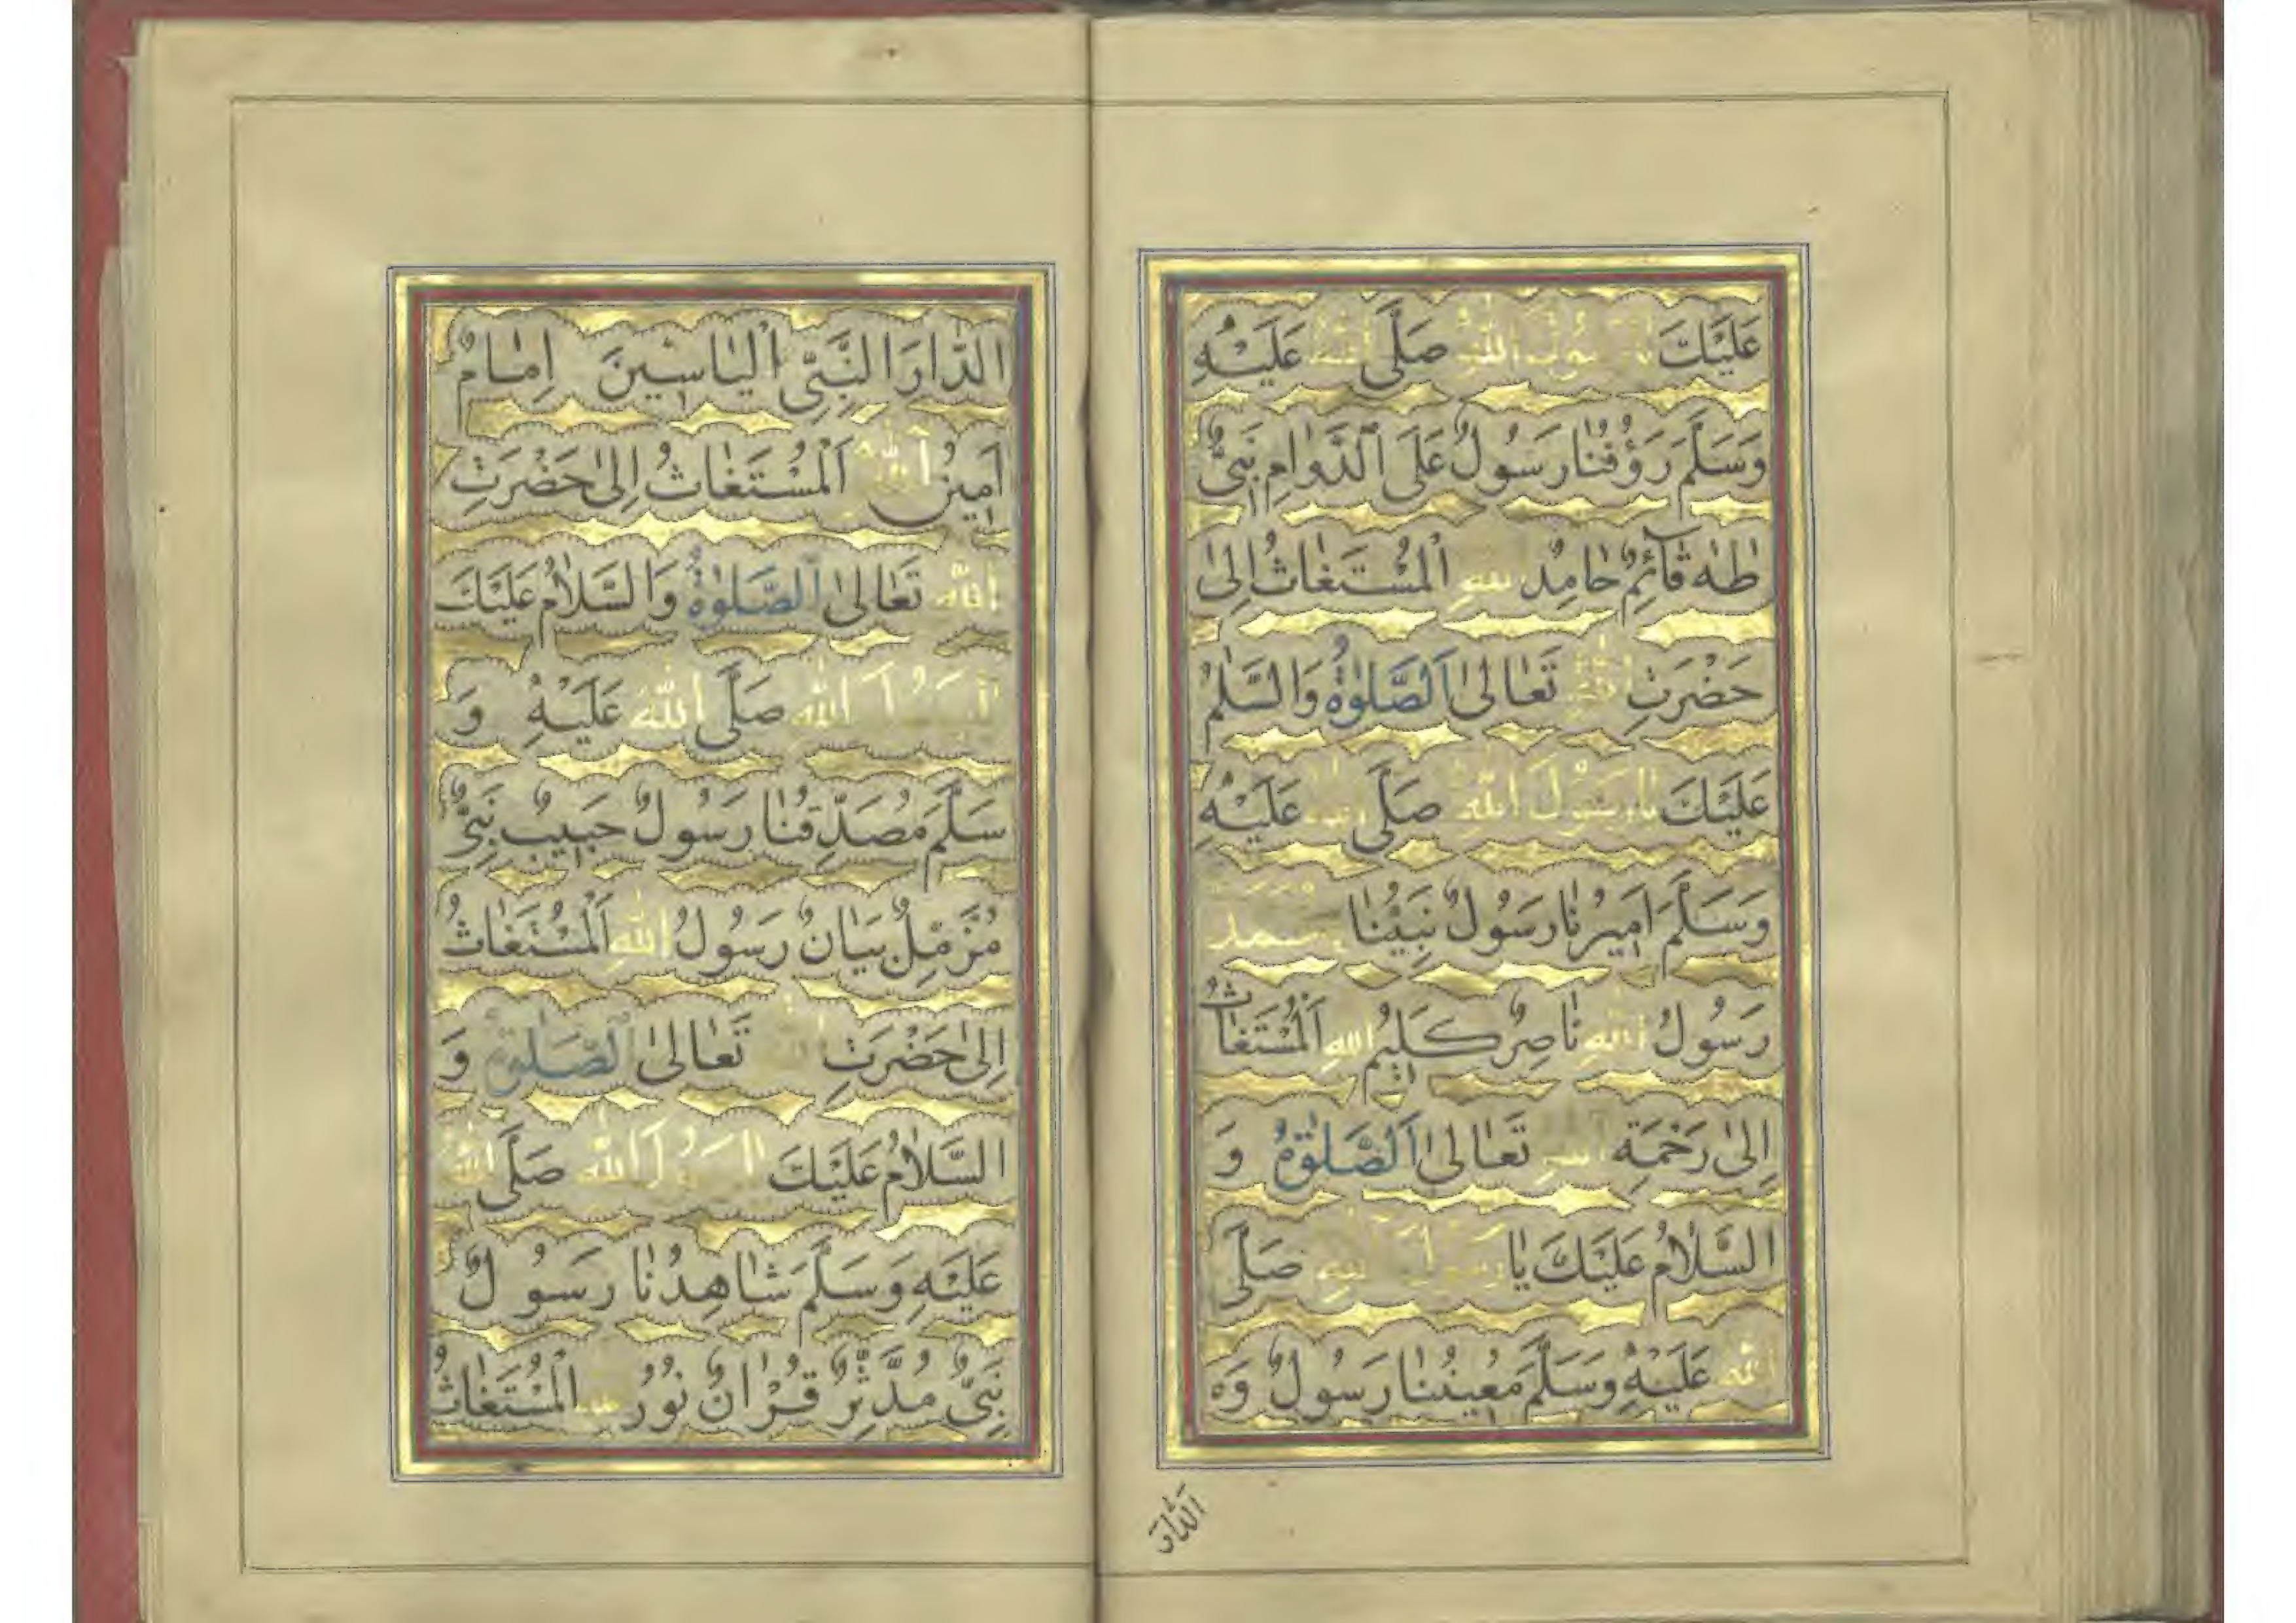 عَلَيْكَ يَا رَسُولَ اللّٰهِ صَلَّى اللّٰهُ عَلَيْهِ
وَسَلَّمَ رَؤُفُنَا رَسُولٌ عَلَى الدَّوَامِ نَبِىٌّ
طٰهٰ قَآئِمٌ حَامِدٌ لِلّٰهِ الْمُسْتَغَاثُ اِلٰى
حَضْرَتِ اللّٰهِ تَعَالٰى اَلصَّلٰوةُ وَالسَّلٰمُ
عَلَيْكَ يَا رَسُولَ اللّٰهِ صَلَّى اللّٰهُ عَلَيْهِ
وَسَلَّمَ اَمِيرُنَا رَسُولٌ نَبِيُّنَا
رَسُولُ اللّٰهِ نَاصِرٌ كَلِيمُ اللّٰهِ اَلْمُسْتَغَاثُ
اِلٰى رَحْمَةِ اللّٰهِ تَعَالٰى اَلصَّلٰوةُ وَ
السَّلَامُ عَلَيْكَ يَا رَسُولَ اللّٰهِ صَلَّى
اللّٰهُ عَلَيْهِ وَسَلَّمَ مُعِينُنَا رَسُولٌ وَه
الدَّارَ النَّبِىِّ الْيَاسِينَ اِمَامٌ
اَمِينُ اللّٰهِ اَلْمُسْتَغَاثُ اِلٰى حَضْرَتِ
اللّٰهِ تَعَالٰى اَلصَّلٰوةُ وَالسَّلَامُ عَلَيْكَ
يَا رَسُولَ اللّٰهِ صَلَّى اللّٰهُ عَلَيْهِ وَ
سَلَّمَ مُصَدِّقُنَا رَسُولٌ حَبِيبٌ نَبِىٌّ
مُزَّمِّلٌ بَيَانٌ رَسُولُ اللّٰهِ اَلْمُسْتَغَاثُ
اِلٰى حَضْرَتِ اللّٰهِ تَعَالٰى اَلصَّلٰوةُ وَ
السَّلَامُ عَلَيْكَ يَا رَسُولَ اللّٰهِ صَلَّى اللّٰهُ
عَلَيْهِ وَسَلَّمَ شَاهِدُنَا رَسُولٌ
نَبِىٌّ مُدَّثِّرٌ قُرْاٰنٌ نُورُ اللّٰهِ الْمُسْتَغَاثُ